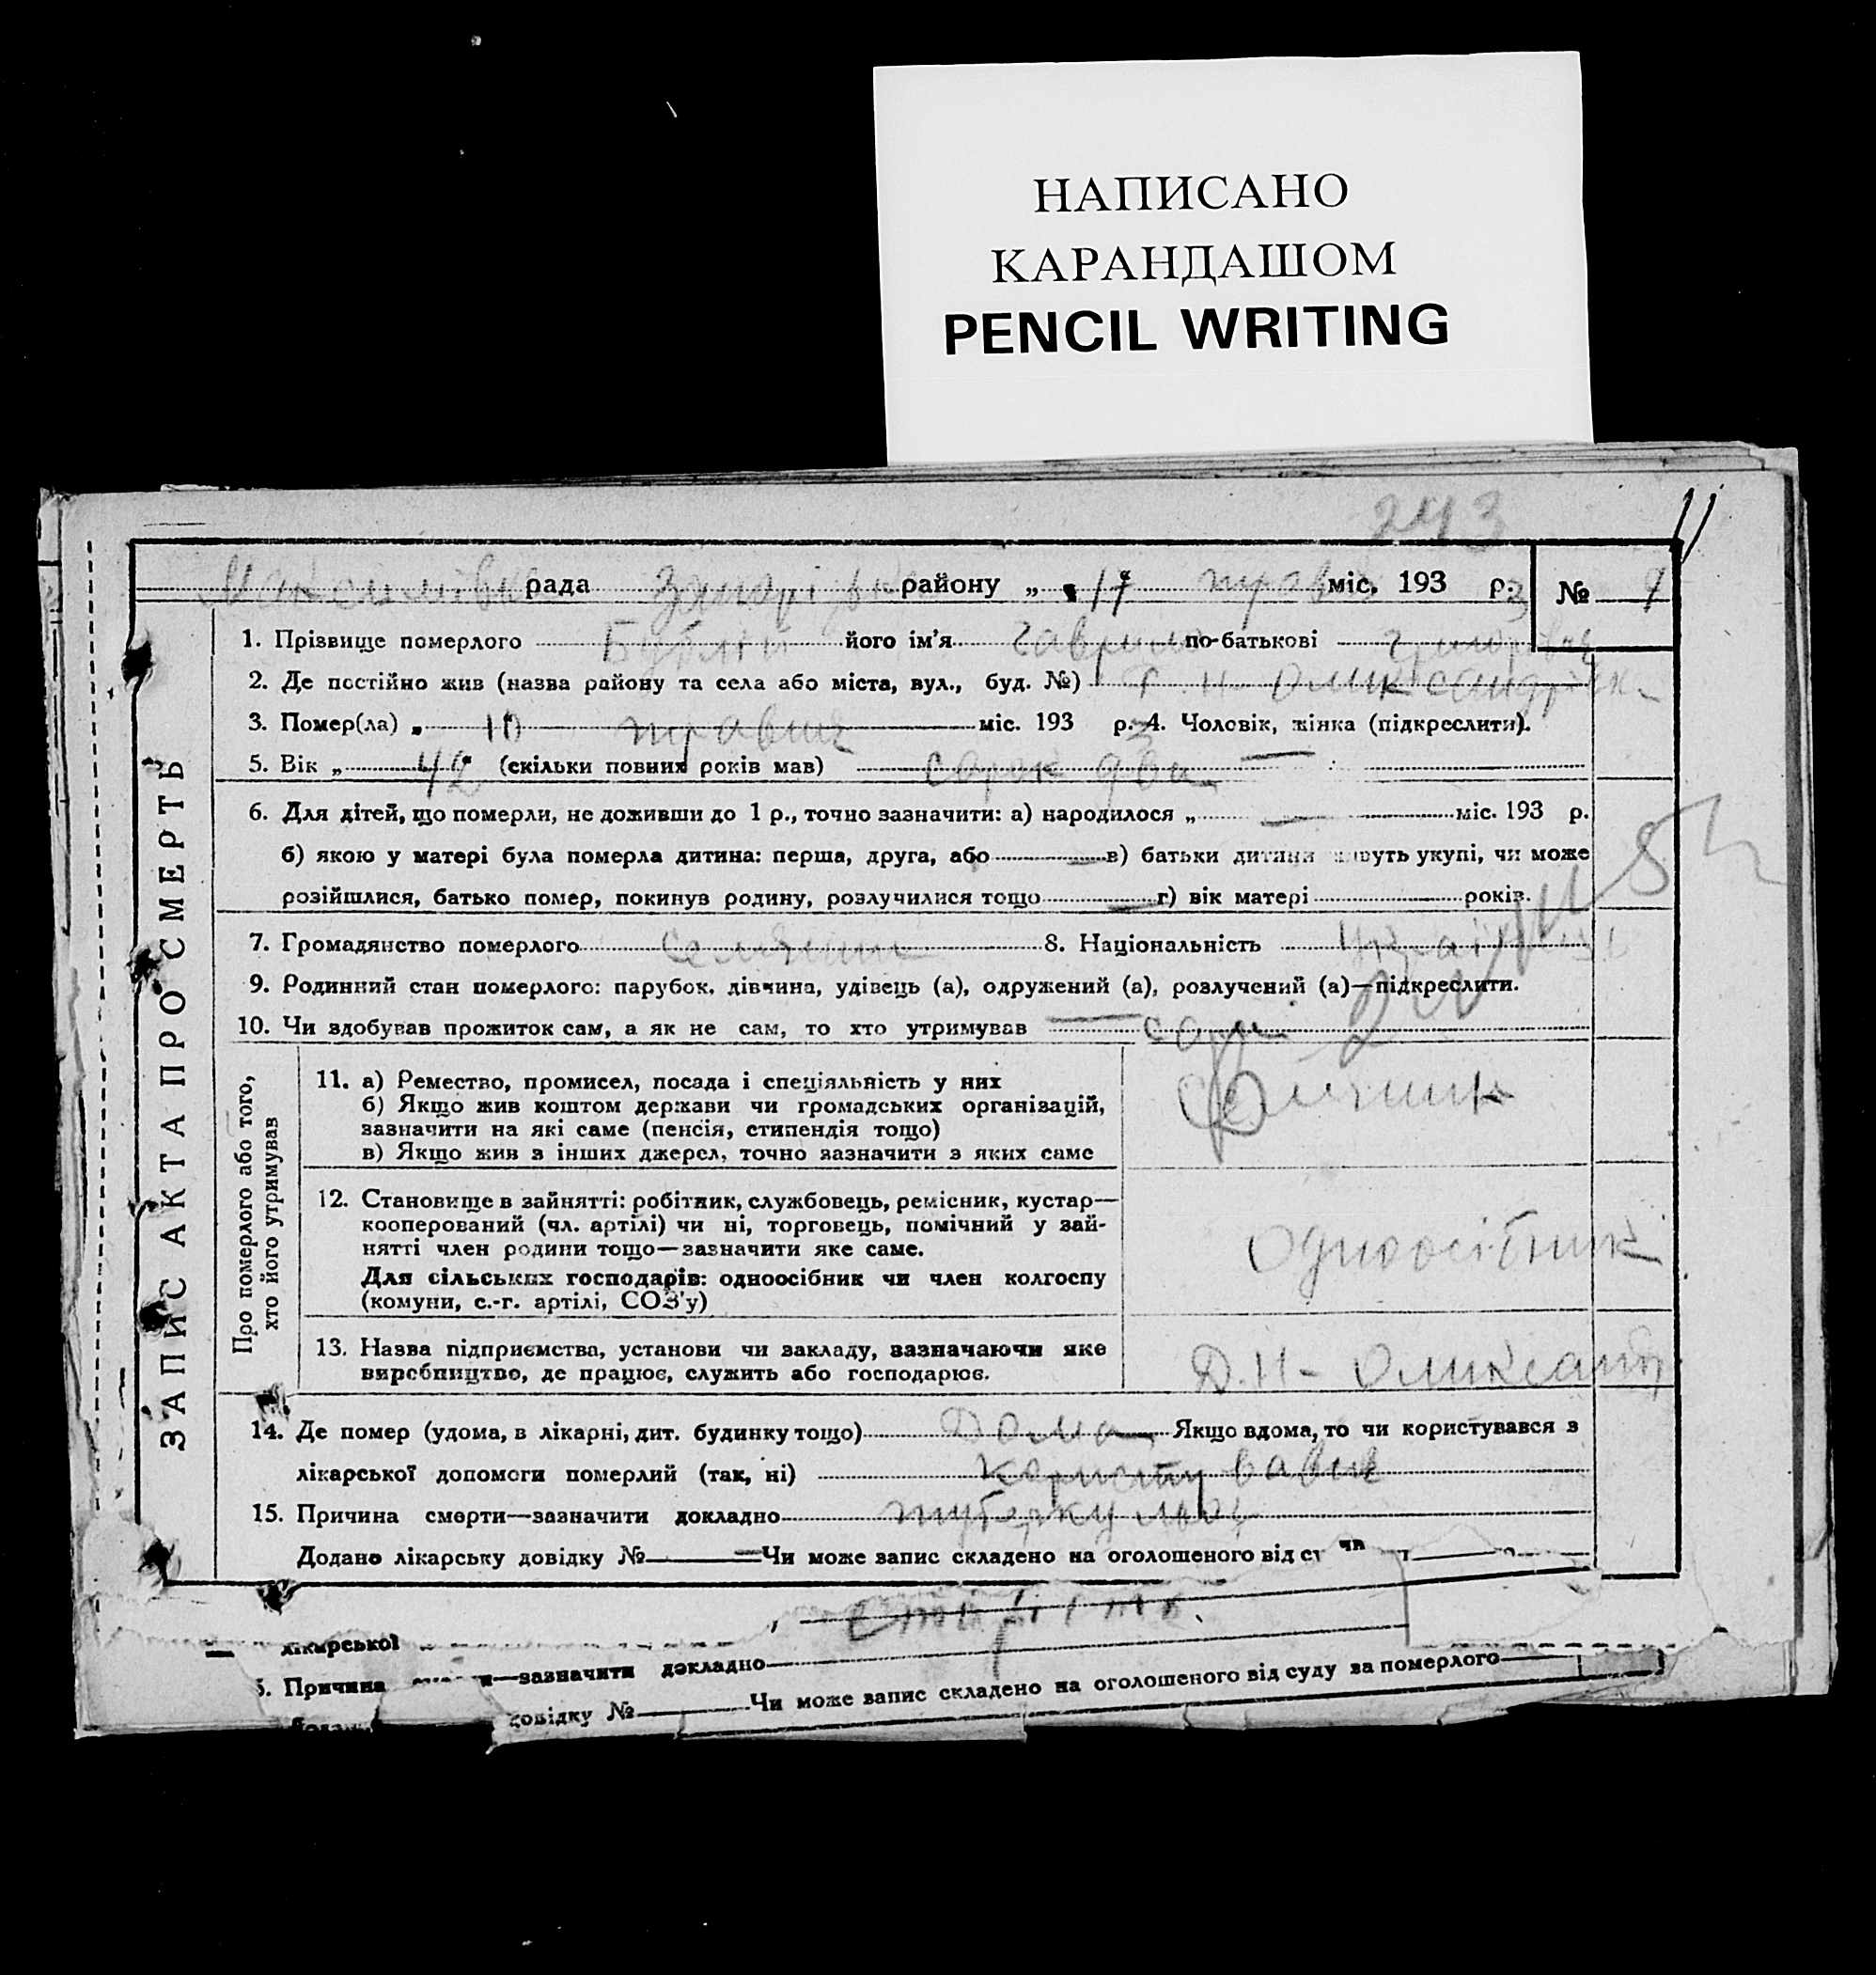 НАПИСАНО
КАРАНДАШОМ
PENCIL WRITING
243
11
рада району „ 17 “ трав міс. 193 3 р. №
ЗАПИС АКТА ПРО СМЕРТЬ
1. Прізвище померлого його ім’я Гаврило по-батькові
2. Де постійно жив (назва району та села або міста, вул., буд. №)
3. Помер(ла) „ 10 травня міс. 193 3 р. 4. Чоловік, жінка (підкреслити).
5. Вік „ 42 “ (скільки повних років мав) сорок два
6. Для дітей, що померли, не доживши до 1 р., точно зазначити: а) народилося „ — міс. 193 р.
б) якою у матері була померла дитина: перша, друга, або — в) батьки дитини живуть укупі, чи може
розійшлися, батько помер, покинув родину, розлучилися тощо — г) вік матері років.
7. Громадянство померлого селянин 8. Національність
9. Родинний стан померлого: парубок, дівчина, удівець (а), одружений (а), розлучений (а)—підкреслити.
10. Чи здобував прожиток сам, а як не сам, то хто утримував сам
Про померлого або того,
хто його утримував
11. а) Ремество, промисел, посада і спеціяльність у них
б) Якщо жив коштом держави чи громадських організацій,
зазначити на які саме (пенсія, стипендія тощо)
в) Якщо жив з інших джерел, точно зазначити з яких саме
12. Становище в зайнятті: робітник, службовець, ремісник, кустар—
кооперований (чл. артілі) чи ні, торговець, помічний у зай-
нятті член родини тощо—зазначити яке саме.
Для сільських господарів: одноосібник чи член колгоспу
(комуни, с.-г. артілі, СОЗ’у)
одноосібник
13. Назва підприємства, установи чи закладу, зазначаючи яке
виробництво, де працює, служить або господарює.
14. Де помер (удома, в лікарні, дит. будинку тощо) Дома Якщо вдома, то чи користувався з
лікарської допомоги померлий (так, ні)
15. Причина смерти—зазначити докладно туберкульоз
Додано лікарську довідку № — Чи може запис складено на оголошеного від
лікарської
5. Причина —зазначити докладно
довідку № Чи може запис складено на оголошеного від суду за померлого